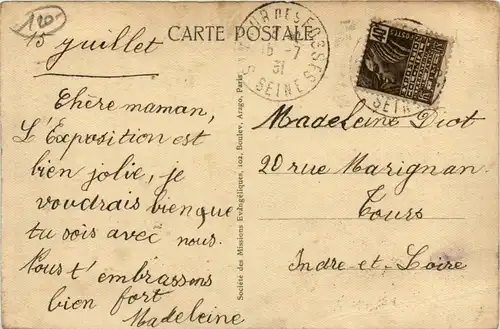 120
15 juillet
CARTE POSTALE
16 -7
31
SEINE
Chère maman,
L'Exposition est
bien jolie, je
voudrais bien que
tu sois avec nous.
Nous t'embrassons
bien fort
Madeleine
Société des Missions Evangéliques, 102, Boulev. Arago, Paris
Madeleine Diot
20 rue Marignan
Tours
Indre-et-Loire